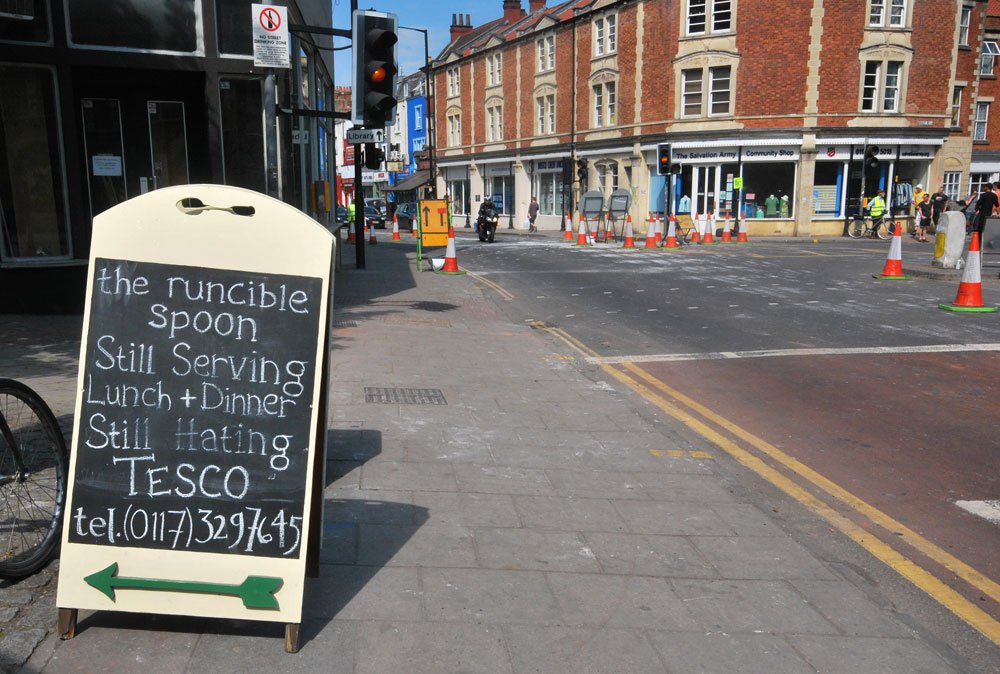 NO STREET
DRINKING ZONE
Library
The Salvation Army Community Shop
the runcible
spoon
Still Serving
Lunch + Dinner
Still Hating
TESCO
tel.(0117)3297645